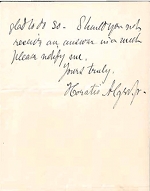 glad to do so - Should you not
receive an answer in a week
please notify me.
Yours truly,
Horatio Alger Jr.